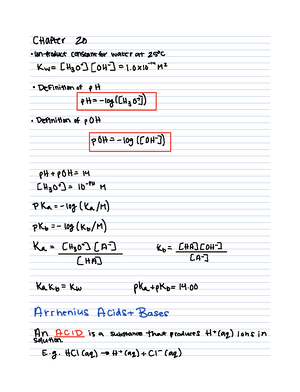 Chapter 20
• Ion-product constant for water at 25°C
Kw = [H₃O⁺][OH⁻] = 1.0×10⁻¹⁴ M²
• Definition of pH
pH = -log([H₃O⁺])
• Definition of pOH
pOH = -log([OH⁻])
pH + pOH = 14
[H₃O⁺] = 10⁻ᵖᴴ M
pKa = -log(Ka/M)
pKb = -log(Kb/M)
Ka = [H₃O⁺][A⁻] / [HA]
Kb = [HA][OH⁻] / [A⁻]
KaKb = Kw
pKa + pKb = 14.00
Arrhenius Acids + Bases
An ACID is a substance that produces H⁺(aq) ions in
solution
E.g. HCl(aq) → H⁺(aq) + Cl⁻(aq)